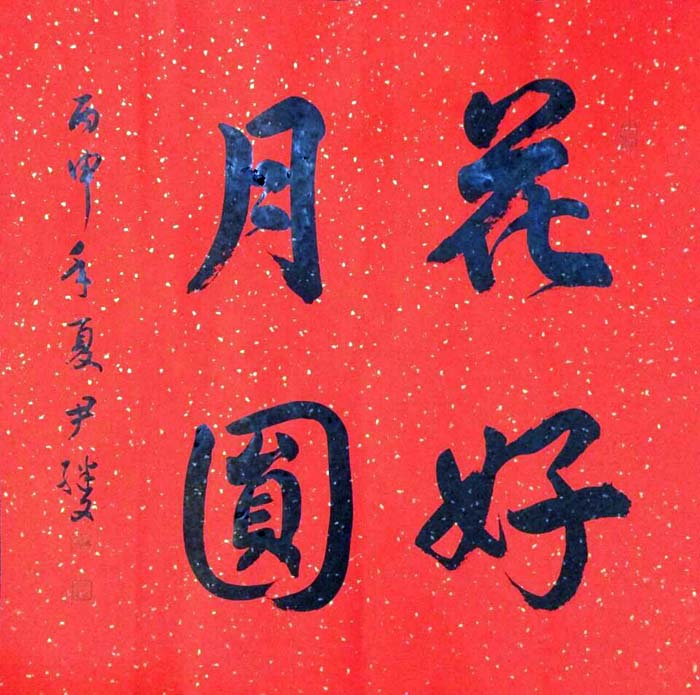 花好
月圓
丙申年夏尹